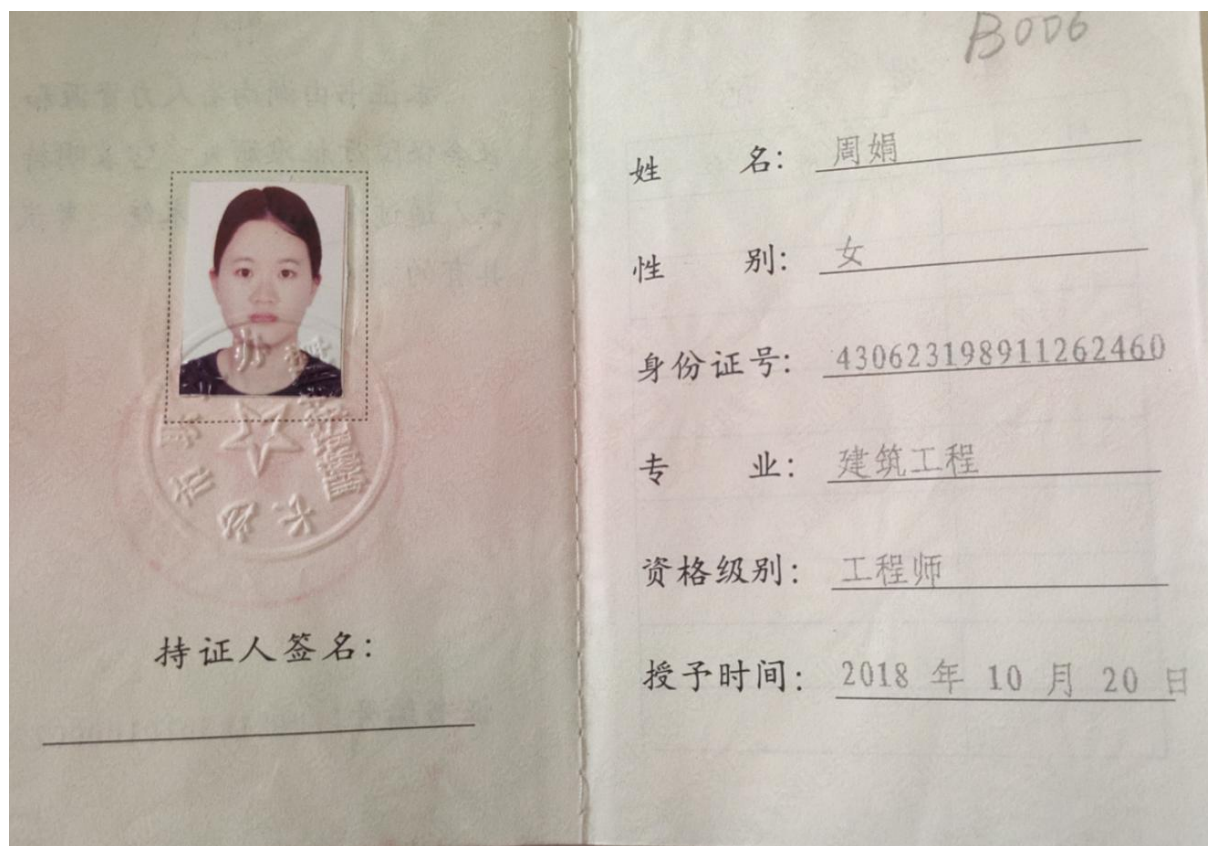 B006
姓 名: 周娟
性 别: 女
身份证号: 430623198911262460
专 业: 建筑工程
资格级别: 工程师
授予时间: 2018 年 10 月 20 日
长沙市
持证人签名: